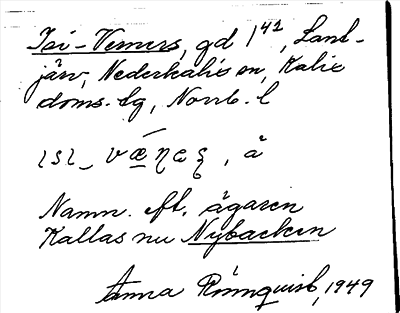 Isi-Verners, gd 1⁴², Land-
järv, Nederkalix sn, Kalix
doms. lg, Norrb. l
ɩsɩ_ vǽ̱ηες, å
Namn. eft. ägaren
Kallas nu Nybacken
Anna Rönnquist, 1949